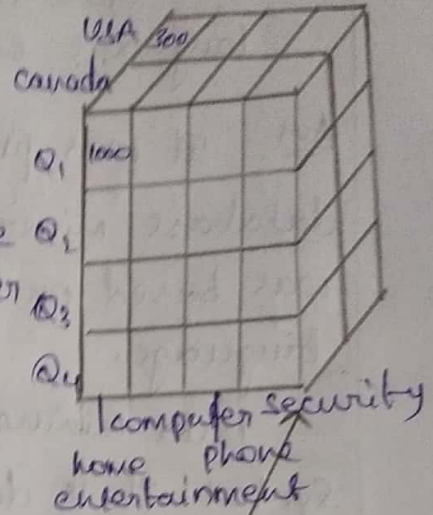 USA 300
Canada
Q1 1000
Q2
Q3
Q4
computer security
home phone
entertainment